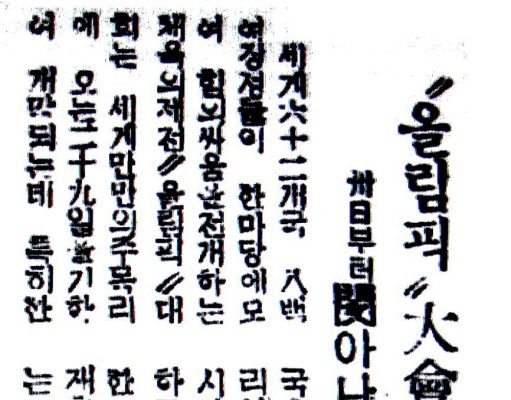 〃올림픽〃大會
卅日부터
세게六十二개국 八백
여장정들이 한마당에모
여 힘의싸움을전개하는
체육의제전〃올림픽〃대
회는 세게만만의주목리
에 오는二十九일을기하
여 개막되는데 특히한
국
리
시
하
한
재
는